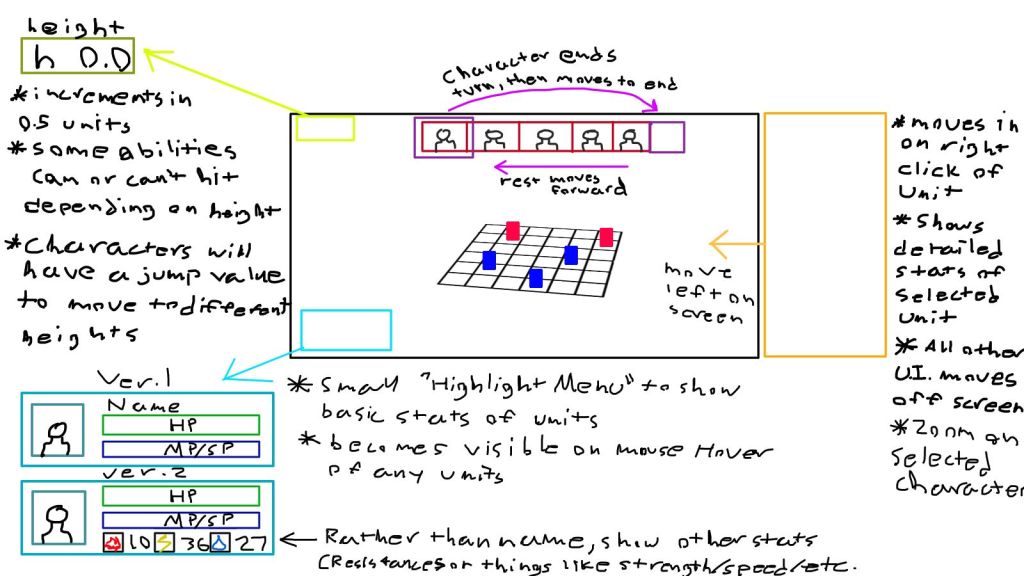 height
h 0.0
*increments in
0.5 units
*some abilities
can or can't hit
depending on height
*Characters will
have a jump value
to move to different
heights
Character ends
turn, then moves to end
rest moves
forward
move
left on
screen
*moves in
on right
click of
unit
*Shows
detailed
stats of
selected
unit
*All other
U.I. moves
off screen
*Zoom on
selected
character
Ver.1
Name
HP
MP/SP
*Small "Highlight Menu" to show
basic stats of units
*becomes visible on mouse Hover
of any units
ver.2
HP
MP/SP
10 36 27
Rather than name, show other stats
(Resistances or things like strength/speed/etc.